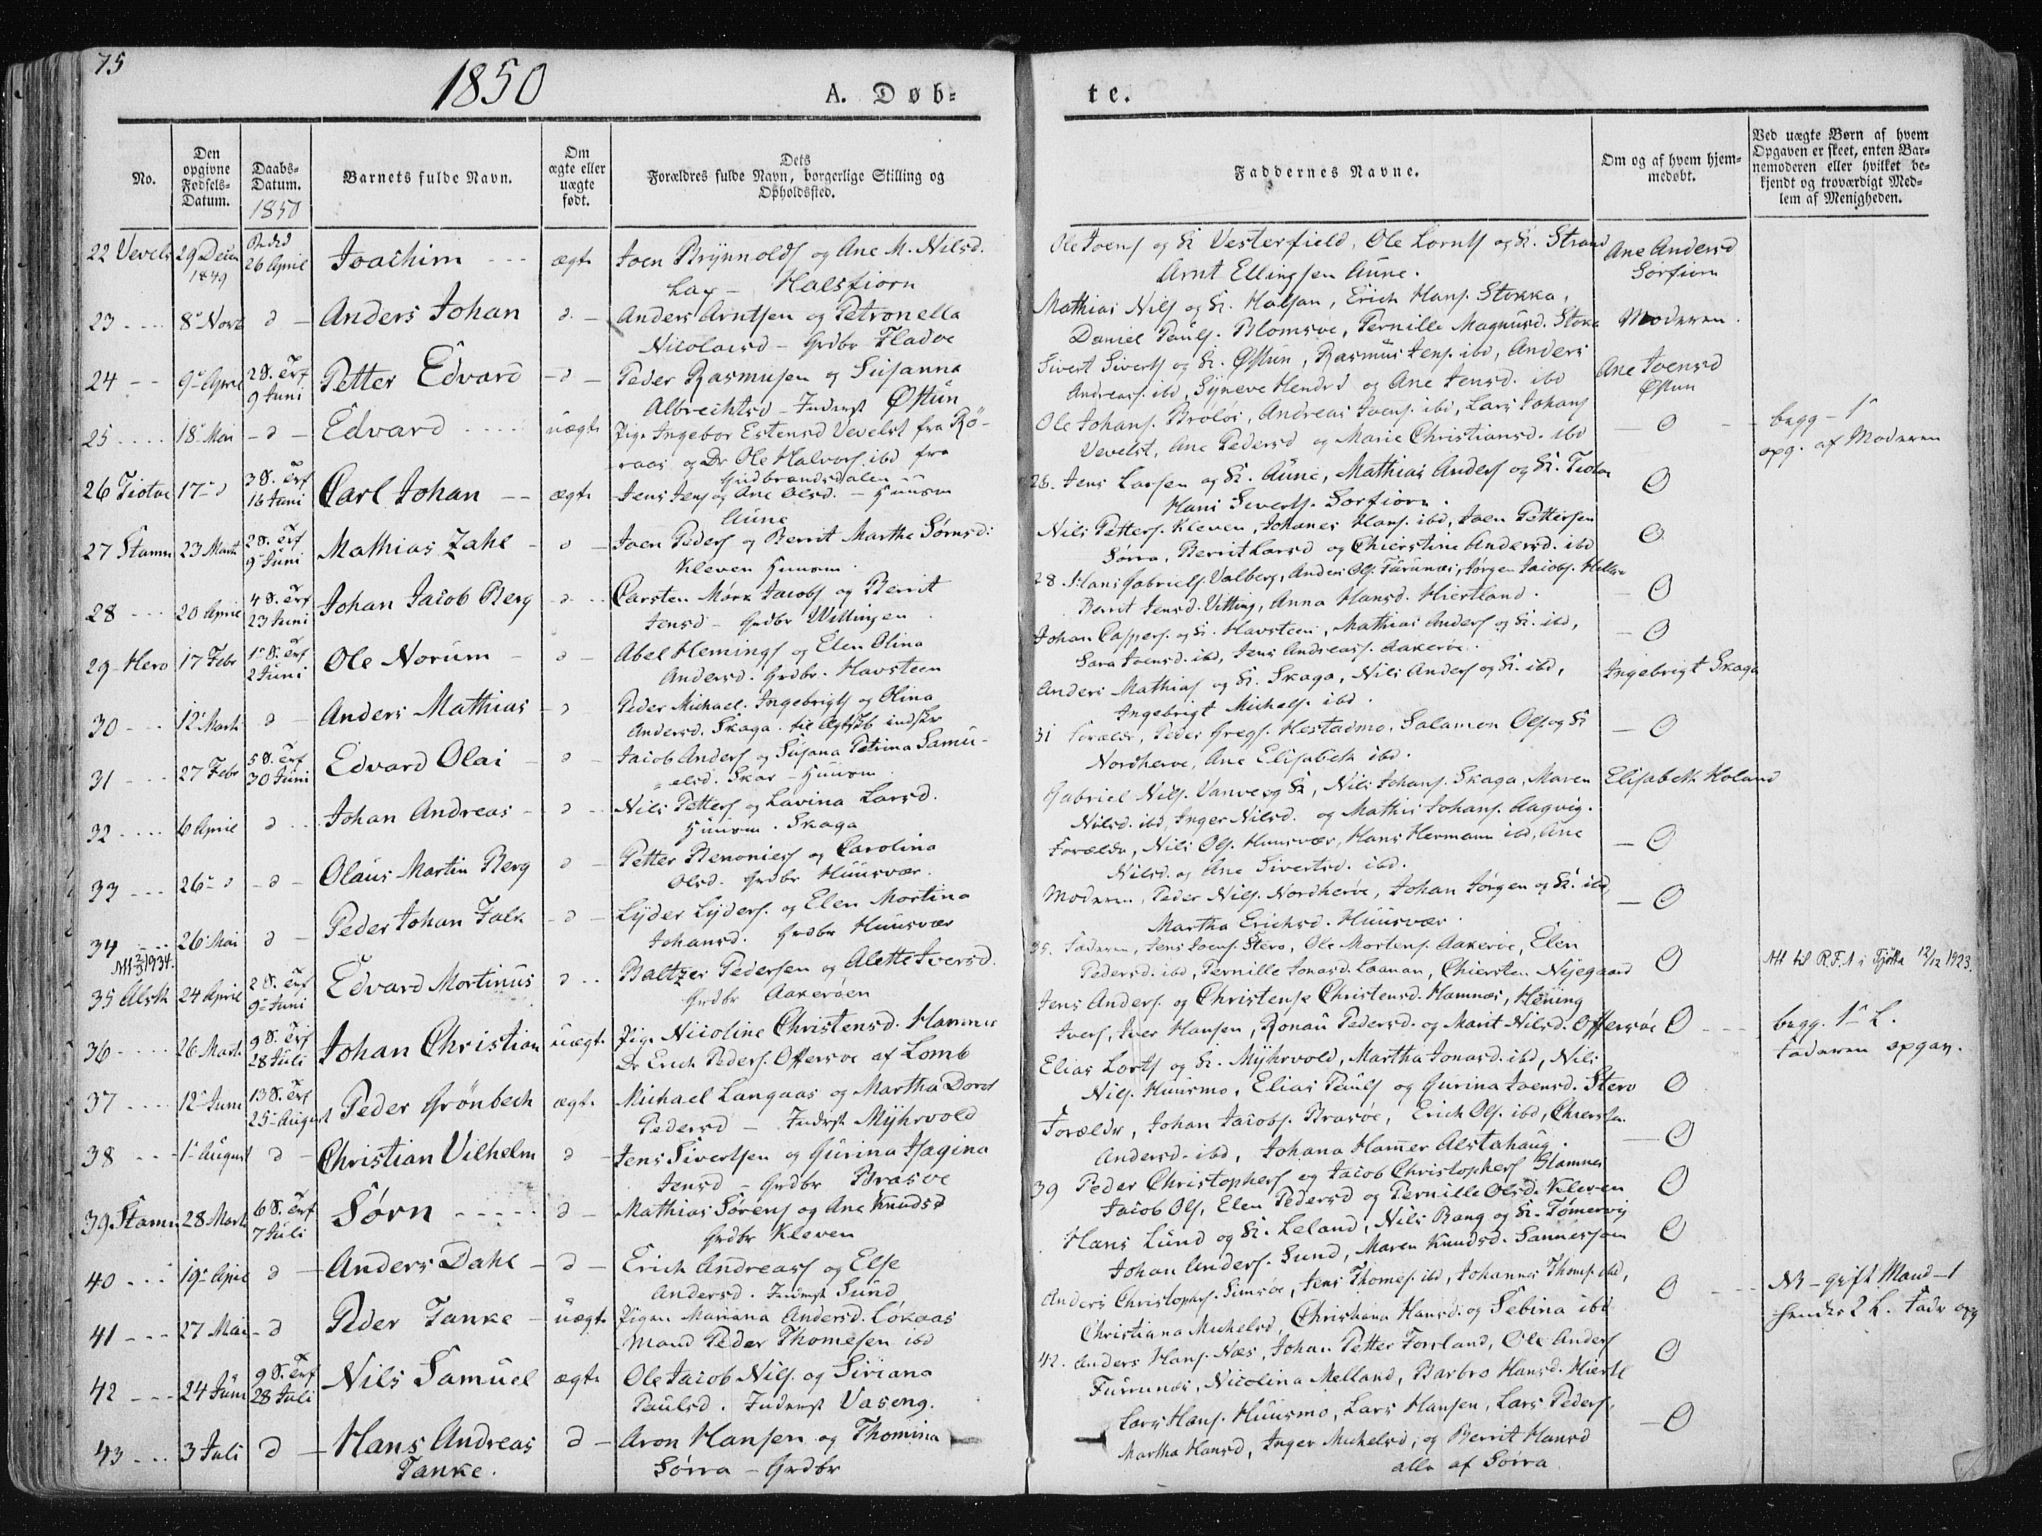 75
1850
A. Døb-
te.
No.
Den opgivne Fødsels-Datum.
Daabs-Datum.
1850
Barnets fulde Navn.
Om ægte eller uægte født.
Dets Forældres fulde Navn, borgerlige Stilling og Opholdsted.
Faddernes Navne.
Om og af hvem hjem-medøbt.
Ved uægte Børn af hvem Opgaven er skeet, enten Bar-nemoderen eller hvilket be-kjendt og troværdigt Med-lem af Menigheden.
22 Vevels 29 Decm 1849 26 April Joachim ægte Joen Brynnolds og Ane M. Nilsd.
Halsfiorn
Ole Joens og K. Vesterfield, Ole Lornts og K. Strand
Arnt Ellingsen Aune.
Ane Andersd Sørfiorn
23 8de Anders Johan d Anders Arntsen og Petronella
Nicolaisd - Grdbr Fladøe
Mathias Nils og K. Halsan, Erich Hans. Stokka,
Daniel Pauls. Blomsøe, Pernille Magnusd. Stoka
Moderen.
24 9de April 2 S. Trf 9 Juni Petter Edvard d Peder Rasmusen og Susanna
Albrechtsd - Inderst Østun
Sivert Siverts og K. Østun, Rasmus Jens. ibd, Anders
Andreas. ibd, Synneve Hendrd og Ane Jensd. ibd
Ane Joensd Østun
25 18 Mai d Edvard uægte Pige Ingebor Estensd Vevelst fra Rø-
raas og Dr Ole Halvors ibd fra
Gudbrandsdalen
Ole Johans. Brøløs, Andreas Joens. ibd, Lars Johans
Vevelst, Ane Pedersd og Marie Christiansd. ibd
O
begg - 1
opg. af Moderen
26 Tiøtøe 17 d 3 S. Trf 16 Juni Carl Johan ægte Jens Jens og Ane Olsd. - Huusm
Aune
26. Jens Larsen og K. Aune, Mathias Anders og K. Tiøtøe
Hans Siverts. Sørfiorn.
O
27 Stamn 23 Marts 2 S. Trf 9 Juni Mathias Zahl d Joen Peders og Berrit Martha Sørnsd:
Kleven Huusm.
Nils Petters. Kleven, Johanes Hans. ibd, Joen Pettersen
Sørra, Berrit Larsd og Chierstine Andersd. ibd
O
28 20 April 4 S. Trf 23 Juni Johan Jacob Berg d Carsten Mørk Jacobs og Berrit
Jensd - Grdbr Willingen
28. Hans Gabriels. Valberg, Anders Ols. Furunæs, Jørgen Jacobs.
Berrit Jensd. Vitting, Anna Hansd. Hiertland.
O
29 Herø 17 Febr 1 S. Trf 2 Juni Ole Norum d Abel Hemings og Elen Olina
Andersd. Grdbr. Havsteen
Johan Caspers. og K. Havsteen, Mathias Anders og K. ibd,
Sara Joensd. ibd, Jens Andreas. Aakerøe.
O
30 12 Marts d Anders Mathias d Peder Michael. Ingebrigts og Olina
Andersd. Skaga.
Anders Mathias og K. Skaga, Nils Anders og K. ibd,
Ingebrigt Michels. ibd.
Ingebrigt Skaga
31 27 Febr 5 S. Trf 30 Juni Edvard Olai d Jacob Anders og Susana Petrina Samu-
elsd. Skar - Huusm.
31 Forældr, Peder Gregs. Hestadmo, Salamon Ols og K
Nordherøe, Ane Elisabeth ibd.
O
32 6 April d Johan Andreas d Nils Petters og Lavina Larsd.
Huusm. Skaga
Gabriel Nils. Vanve og K, Nils Johans. Skaga, Maren
Nilsd. ibd, Inger Nilsd. og Mathis Johans. Aagvig.
Elisabeth Holand
33 26 d d Olaus Martin Berg d Petter Benoniers og Carolina
Olsd. Grdbr Huusvær.
Forældr, Nils Ols. Huusvær, Hans Herman ibd, Ane
Nilsd. og Ane Sivertsd. ibd.
O
34 26 Mai d Peder Johan Falk d Lyder Lyders. og Elen Martina
Johansd. Grdbr Huusvær
Moderen, Peder Nils. Nordherøe, Johan Jørgen og K. ibd,
Martha Erichsd. Huusvær.
O
1934.
35 Alsth 24 April 2 S. Trf 9 Juni Edvard Mortinus d Baltzer Pedersen og Alette Iversd.
Grdbr Aakerøen
35. Faderen, Jens Joens. Sterø, Ole Mortens. Aakerøe, Elen
Pedersd. ibd, Pernille Jonasd. Laanan, Chiersten Nyegaard
O
Att til R.F.A i Tjøtta 12/12 1923.
36 26 Marts 9 S. Trf 28 Juli Johan Christian uægte Pige Nicoline Christensd. Hamnes
Dr Erich Peders. Offersøe af Lomb
Jens Anders. og Christense Christensd. Hamnæs, Hening
Ivers, Iver Hansen, Ronau Pedersd. og Marit Nilsd. Offersøe
O
begg. 1 L.
Faderen opgav.
37 12 Juni 13 S. Trf 25 August Peder Grønbech ægte Michael Langaas og Martha Dord
Pedersd - Inderst Myhrvold
Elias Lorts og K. Myhrvold, Martha Jonasd. ibd, Nils
Nils. Huusmo, Elias Pauls og Gurina Joensd. Sterø
O
38 1 August d Christian Vilhelm d Jens Sivertsen og Gurina Hagina
Jensd - Grdbr Brasøe
Forældr, Johan Jacobs. Brasøe, Erich Ols. ibd, Chiersten
Andersd. ibd, Johana Hamer Alstahaug.
O
39 Stamn 28 Marts 6 S. Trf 7 Juli Sørn d Mathias Sørens og Ane Knudsd
Grdbr Kleven
39 Peder Christophers og Jacob Christophers Stamnes
Jacob Ols, Elen Pedersd og Pernille Olsd. Kleven
O
40 19 April d Anders Dahl d Erich Andreas og Else
Andersd. Inderst Sund
Hans Lund og K. Leland, Nils Bang og K. Tømervig
Johan Anders. Sund, Maren Knudsd. Sannessøen
O
41 27 Mai d Peder Tanke uægte Pigen Mariana Andersd. Løkaas
Mand Peder Thomesen ibd
Anders Christophers. Simsøe, Jens Thomes. ibd, Johannes Thoms. ibd,
Christiana Michelsd, Christiana Hansd. og Sebina ibd
O
NB - gift Mand - 1
hendes 2 L. Fadr opg
42 24 Juni 9 S. Trf 28 Juli Nils Samuel ægte Ole Jacob Nils. og Siriana
Paulsd. Inderst Vaseng.
42. Anders Hans. Næs, Johan Petter Forsland, Ole Anders
Furrunæs, Nicolina Melland, Barbro Hansd. Hiertl
O
43 3 Juli d Hans Andreas Tanke. d Aron Hansen og Thomina
Sørra - Grdbr
Lars Hans. Huusmo, Lars Hansen, Lars Peders,
Martha Hansd, Inger Michelsd, og Berrit Hansd
alle af Sørra
O